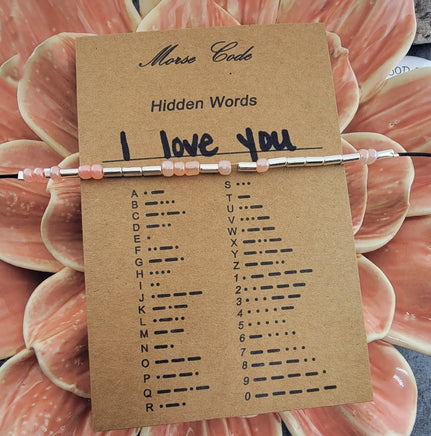 Morse Code
Hidden Words
I love you
A •–
B –•••
C –•–•
D –••
E •
F ••–•
G ––•
H ••••
I ••
J •–––
K –•–
L •–••
M ––
N –•
O –––
P •––•
Q ––•–
R •–•
S •••
T –
U ••–
V •••–
W •––
X –••–
Y –•––
Z ––••
1 •––––
2 ••–––
3 •••––
4 ••••–
5 •••••
6 –••••
7 ––•••
8 –––••
9 ––––•
0 –––––